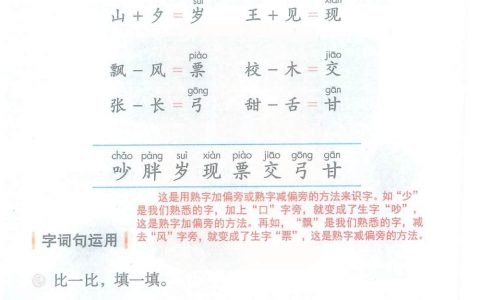 suì xiàn
山＋夕＝岁 王＋见＝现
piào jiāo
飘－风＝票 校－木＝交
gōng gān
张－长＝弓 甜－舌＝甘
chǎo pàng suì xiàn piào jiāo gōng gān
吵 胖 岁 现 票 交 弓 甘
这是用熟字加偏旁或熟字减偏旁的方法来识字。如“少”
是我们熟悉的字，加上“口”字旁，就变成了生字“吵”，
这是熟字加偏旁的方法。再如，“飘”是我们熟悉的字，减
去“风”字旁，就变成了生字“票”，这是熟字减偏旁的方法。
字词句运用
比一比，填一填。